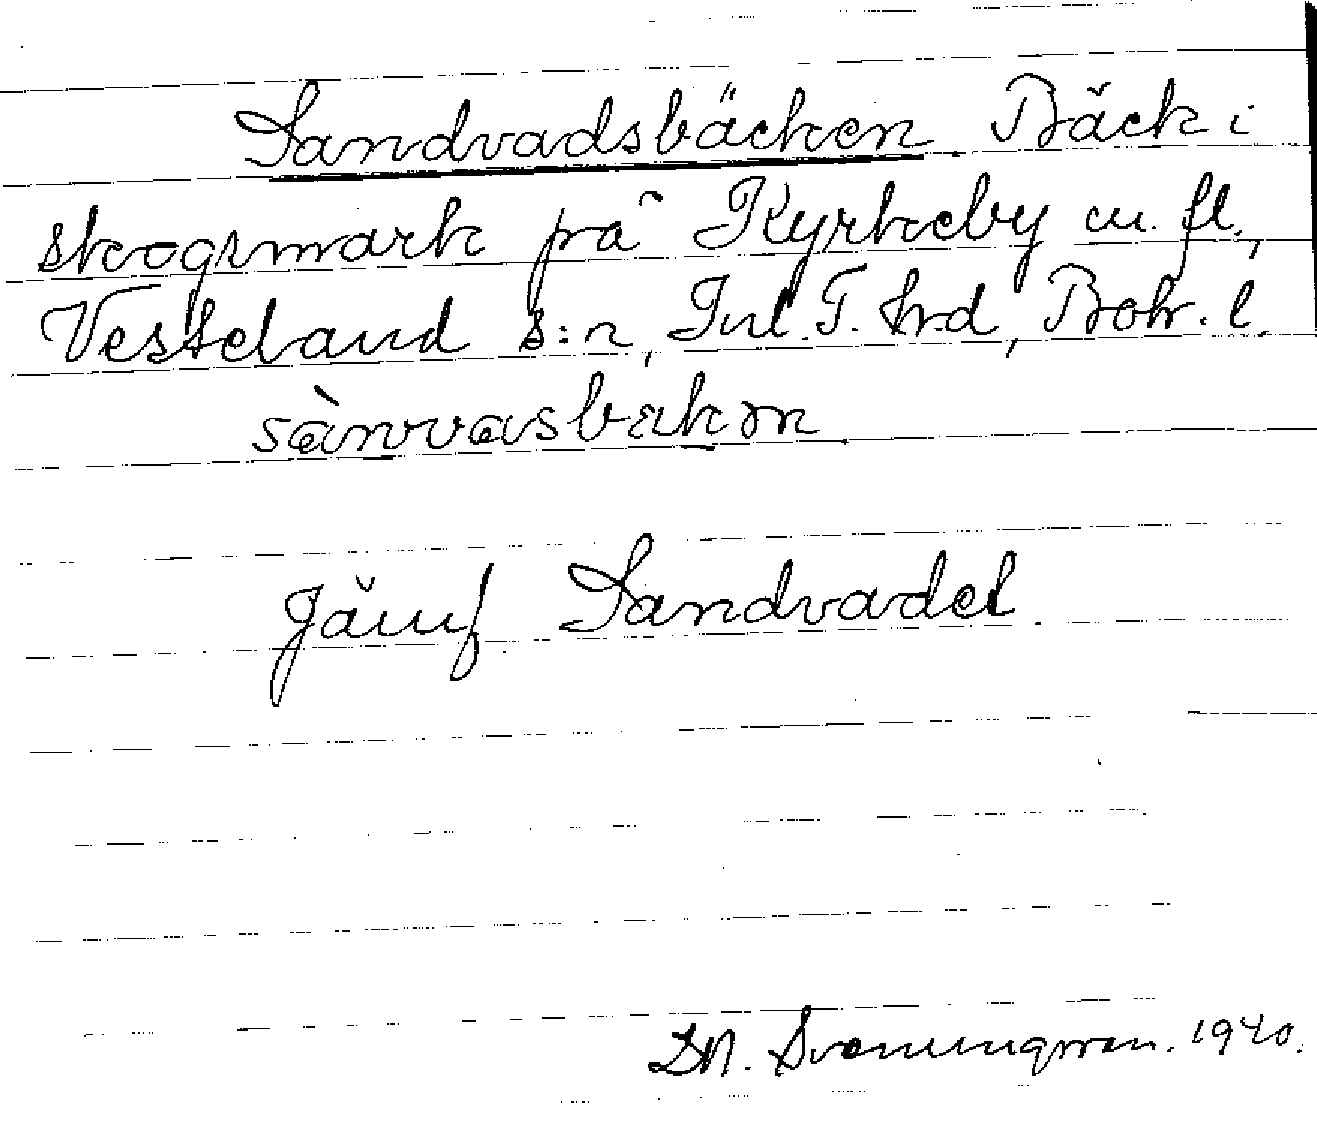 Sandvadsbäcken Bäck i
skogsmark på Kyrkeby m. fl.,
Vesteland s:n, Inl. T. hrd, Boh. l.
sànvasbäkən
Jämf Sandvadet
Svenningson. 1940.